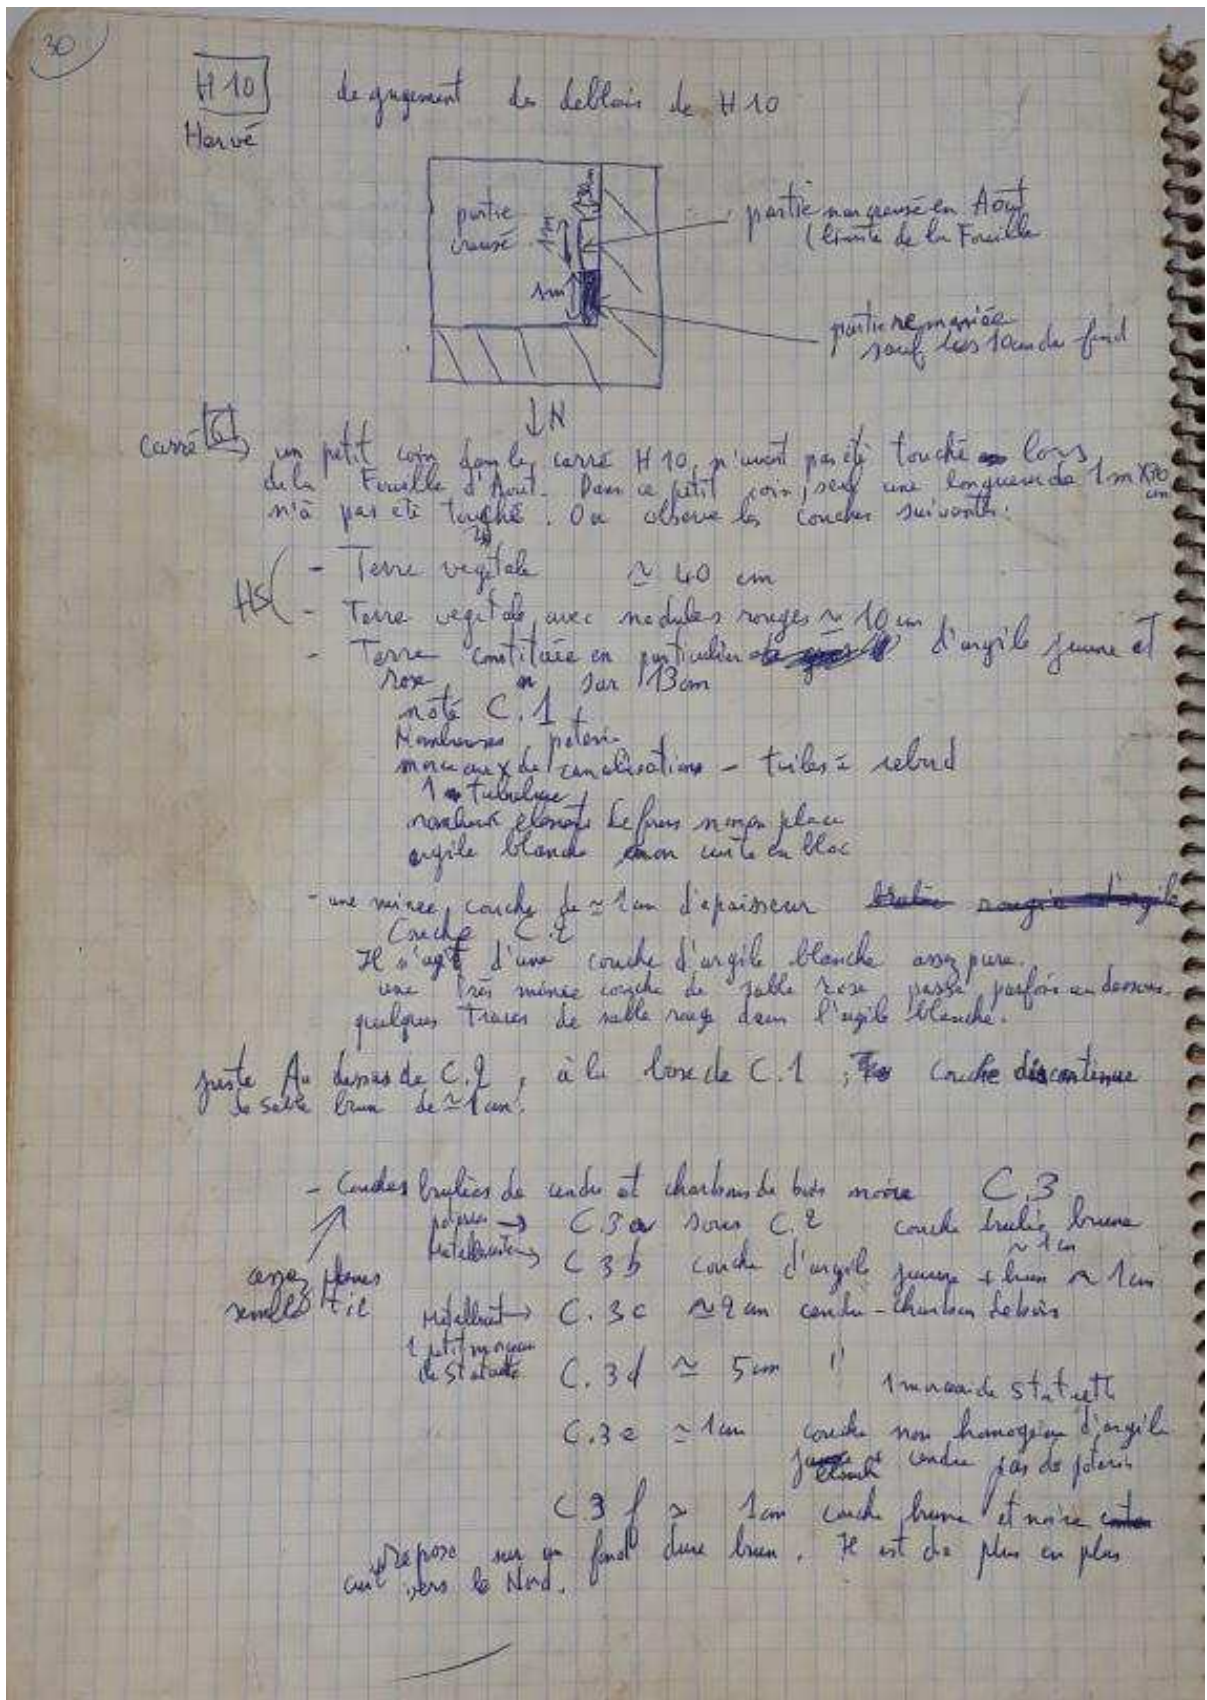 30
H 10
Hervé
degagement des deblais de H 10
30cm
partie
creusé
1m
1m
partie non creusé en Août
(limite de la Fouille
partie remaniée
sauf les 10cm du fond
↓N
Carré
un petit coin dans le carré H 10 n'avait pas été touché lors
de la Fouille d'Aout. Dans ce petit coin, seul une longueur de 1m X30
cm
n'à pas été touché. On observe les couches suivantes:
HS
- Terre végétale ≃ 40 cm
- Terre végétale avec nodules rouges ≃ 10 cm
- Terre constituée en particulier d'argile jaune et
rose sur 13cm
noté C.1
Nombreuses poterie
morceaux de canalisations - tuiles à rebord
1 tubulure
nombreux éléments de fours non en place
argile blanche non cuite en bloc
- une mince couche de ≃ 1cm d'épaisseur brulée rougie d'argile
Couche C.2
Il s'agit d'une couche d'argile blanche assez pure.
une très mince couche de sable rose passe parfois en dessous.
quelques traces de sable rouge dans l'argile blanche.
juste Au dessus de C.2, à la base de C.1, couche discontinue
de sable brun de ≃ 1cm.
- Couches brulées de cendre et charbons de bois noire C.3
poteries → C.3a sous C.2 couche brulée brune
≃ 1cm
→ C 3b couche d'argile jaune + brun ≃ 1cm
assez planes
semble t il
→ C.3c ≃ 2cm cendre-charbon de bois
1 petit morceau
de statuette
C.3d ≃ 5cm "
1 morceau de statuette
C.3e ≃ 1cm couche non homogène d'argile
jaune cendre pas de poterie
C.3f ≃ 1cm couche brune et noire
repose sur un fond dure brun. Il est de plus en plus
cuit vers le Nord.